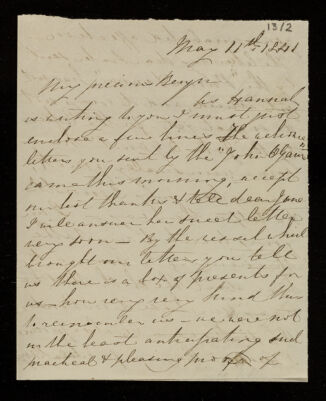 13/2
May 11th 1841
My precious
As Hannah
is writing to you I must just
enclose a few lines. The welcome
letters you sent by the "John O Gaunt"
came this morning, accept
our best thanks & tell dear Jane
I will answer her sweet letter
very soon — By the vessel which
brought our letters you tell
us there is a box of presents for
us — how very very kind thus
to remember us — we were not
in the least anticipating such
practical & pleasing proofs of